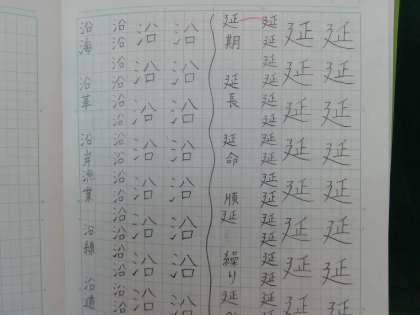 延延延延延延延延
延延延延延延延延
延延延延延延延延延延延延延延延延
延期 延長 延命 順延 繰り延
沿沿沿沿沿沿沿沿
沿沿沿沿沿沿沿沿
沿沿沿沿沿沿沿沿沿沿沿沿沿沿沿沿
沿海 沿革 沿岸漁業 沿線 沿道